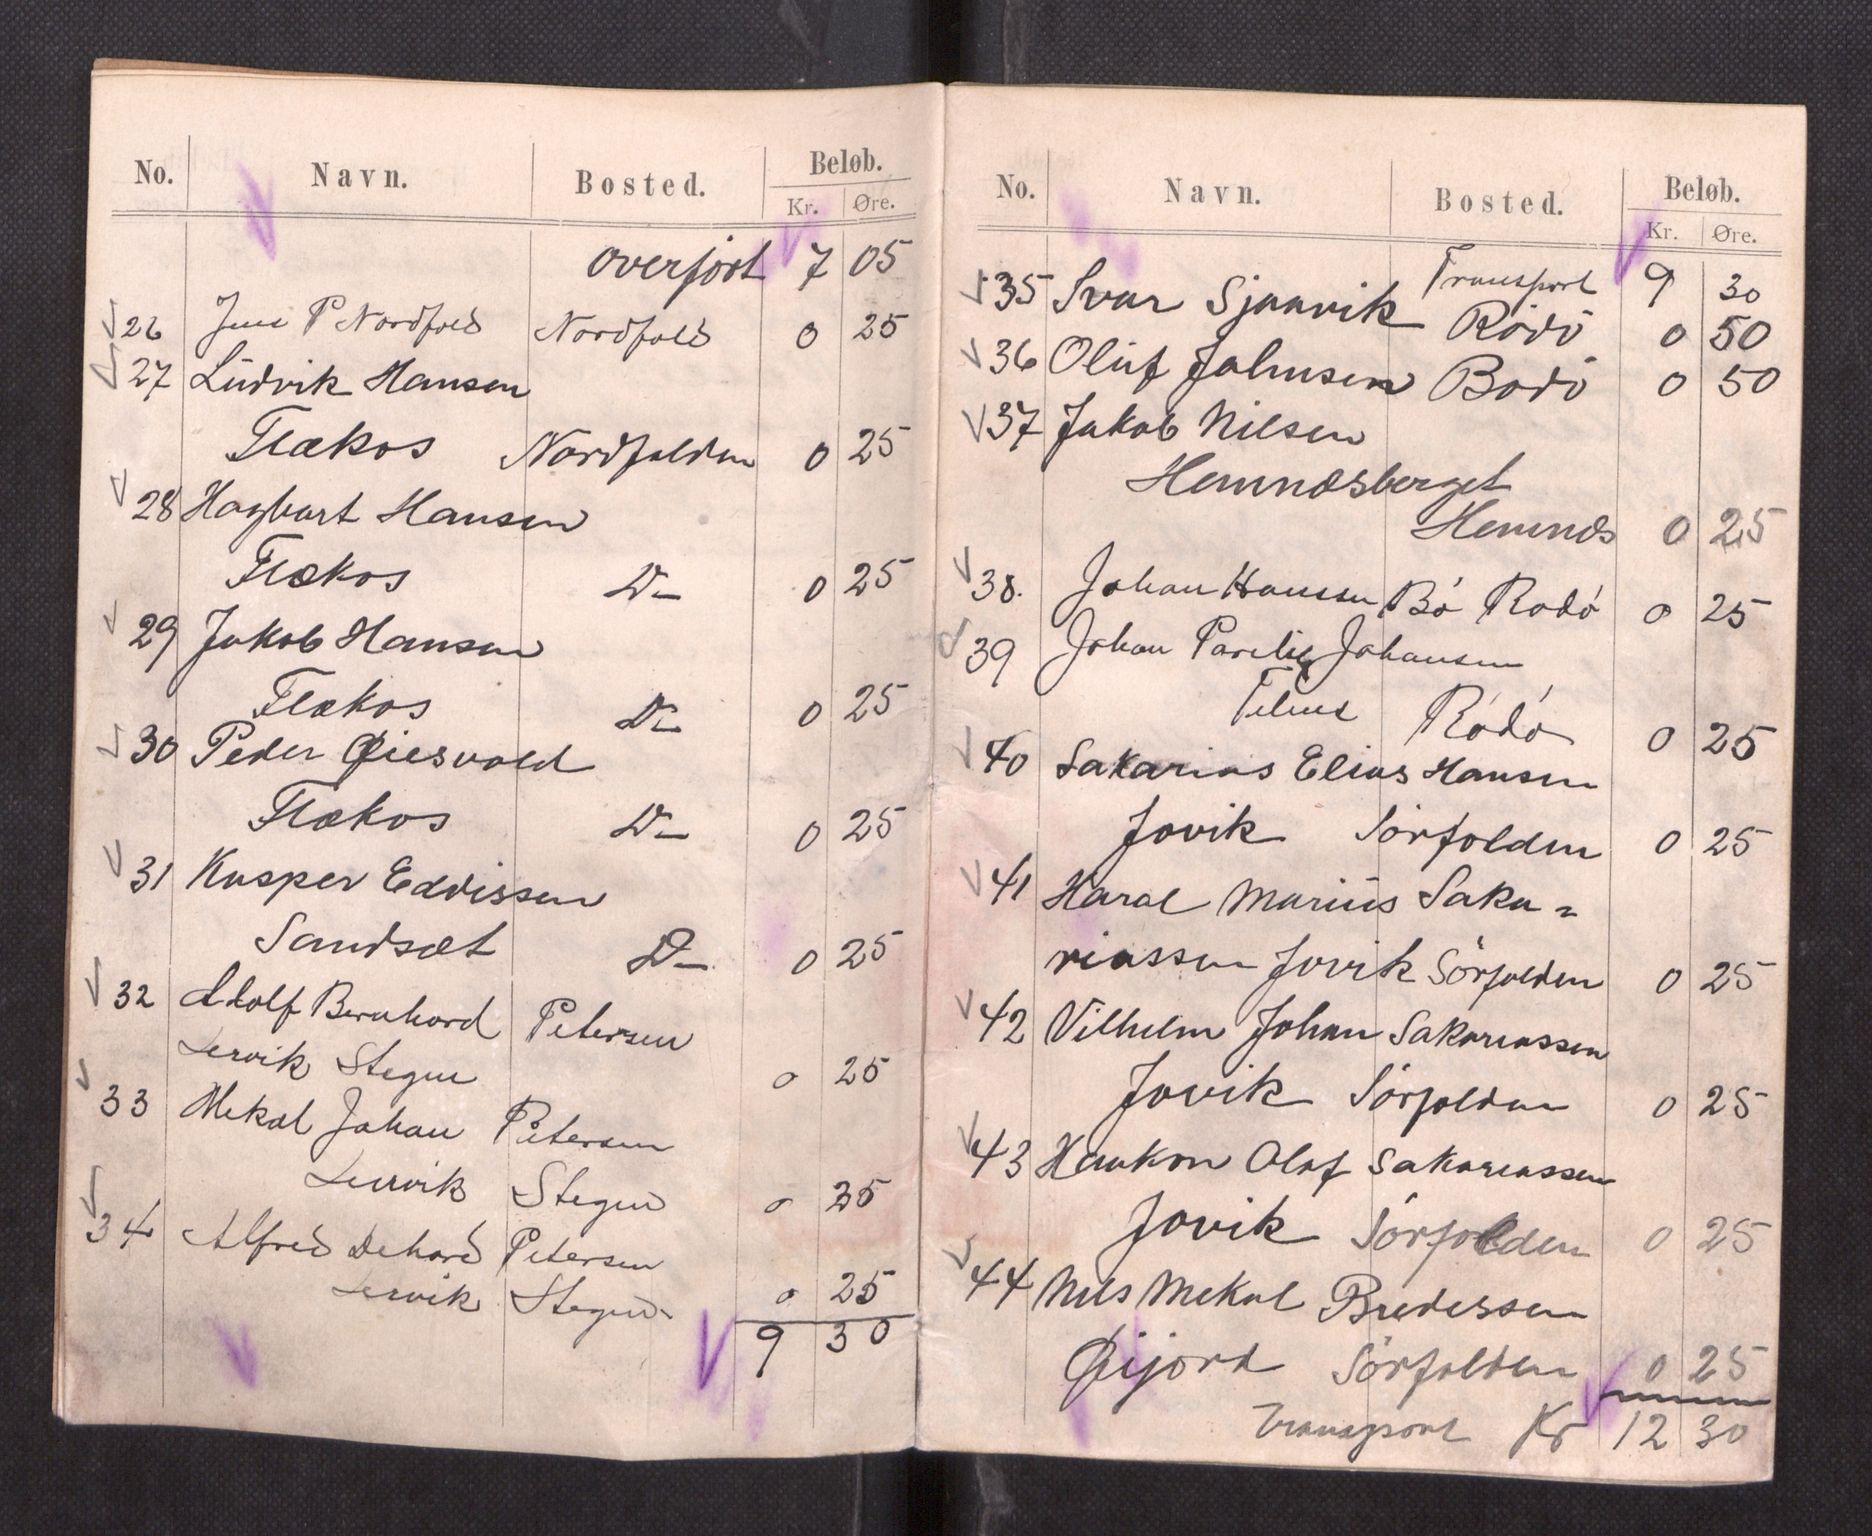 No. Navn. Bosted. Beløb.
Kr. Øre.
overført 7 05
26 Jens P Nordfold Nordfold 0 25
27 Ludvik Hansen
Flækos Nordfolden 0 25
28 Hagbart Hansen
Flækos Do 0 25
29 Jakob Hansen
Flækos Do 0 25
30 Peder Øiesvold
Flækos Do 0 25
31 Kasper Edvissen
Sandsæt Do 0 25
32 Adolf Bernhard Petersen
Lervik Stegen 0 25
33 Mekal Johan Petersen
Leervik Stegen 0 25
34 Alfred Dehard Petersen
Lervik Stegen 0 25
9 30
No. Navn. Bosted. Beløb.
Kr. Øre.
Transport 9 30
35 Svar Sjaavik Rödö 0 50
36 Oluf Johnsen Bodö 0 50
37 Jakob Nilsen
Hemnæsberget
Hemnæs 0 25
38. Johan Hanssen Bö Rodö 0 25
39 Johan Johansen
Rödö 0 25
40 Sakarias Elias Hansen
Jovik Sörfolden 0 25
41 Haral Marius Saka-
riassen Jovik Sörfolden 0 25
42 Vilhelm Johan Sakariassen
Jovik Sörfolden 0 25
43 Haakon Olaf Sakariassen
Jovik Sörfolden 0 25
44 Nils Mekal Bredessen
Øijord Sörfolden 0 25
Transport Kr 12 30